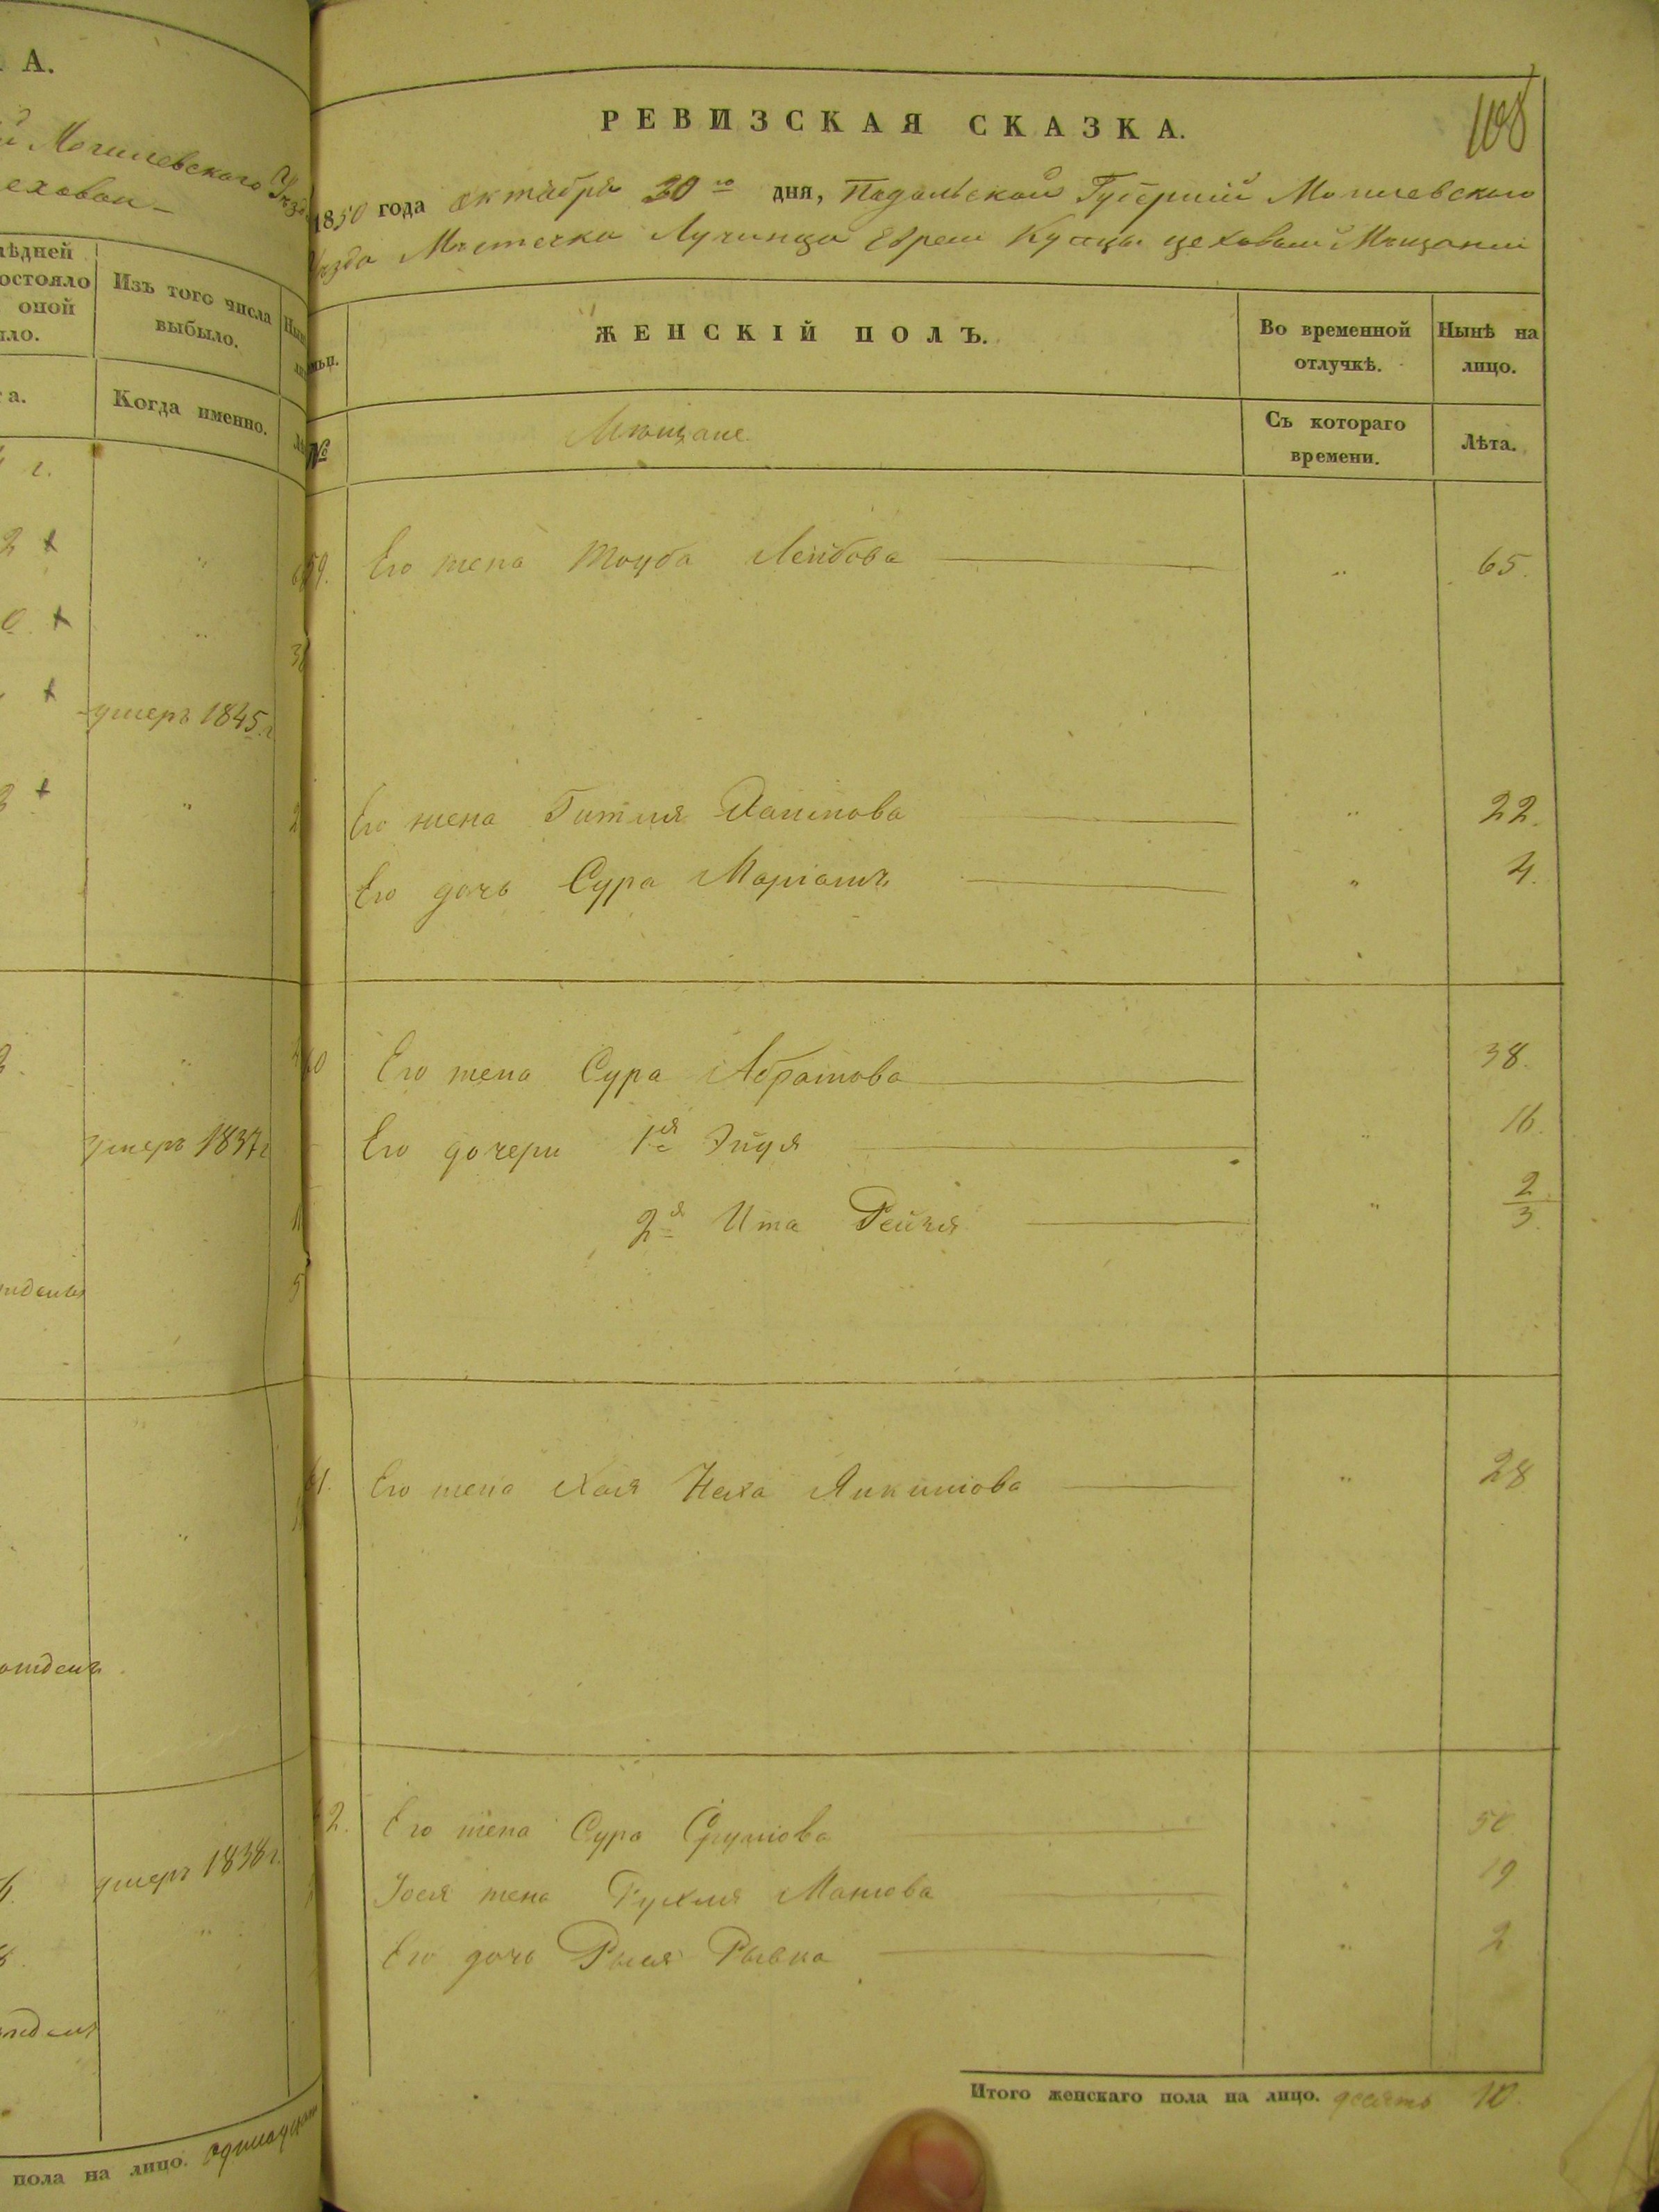 А.
Могилевскаго Уѣзд
еховой
ѣдней
остояло
оной
ло.
Изъ того числа
выбыло.
Когда именно.
умеръ 1845 г
умеръ 1837 г
умеръ 1838 г.
пола на лицо. одинадцать
108
РЕВИЗСКАЯ СКАЗКА.
1850 года октября 30го дня, Подольской Губерніи Могилевскаго
Уѣзда Мѣстечка Лучинца Евреи Купцы цеховыи Мѣщании
ЖЕНСКІЙ ПОЛЪ.
Во временной
отлучкѣ.
Нынѣ на
лицо.
№
Мѣщане
Съ котораго
времени.
Лѣта.
59. Его жена Тоуба Лейбова " 65.
Его жена Гитля Хаимова " 22.
Его дочь Сура Маріамъ " 4.
60 Его жена Сура Абрамова 38.
Его дочери 1я Эйдя " 16.
2я Ита Рейзя " 2/3.
61. Его жена Хая Неха Янкилова " 28
2. Его жена Сура Срулова " 50
Іося жена Рухля Манова " 19
Его дочь Рыся Рывка " 2
Итого женскаго пола на лицо. десять 10.